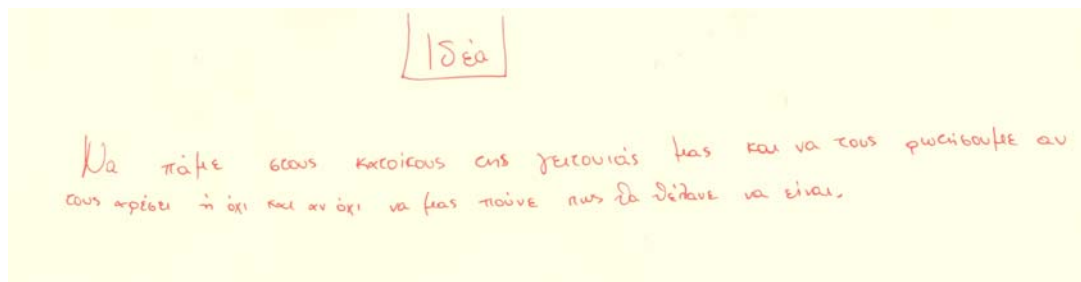 Ιδέα
Να πάμε στους κατοίκους της γειτονιάς μας και να τους ρωτήσουμε αν
τους αρέσει ή όχι και αν όχι να μας πούνε πως θα θέλανε να είναι.